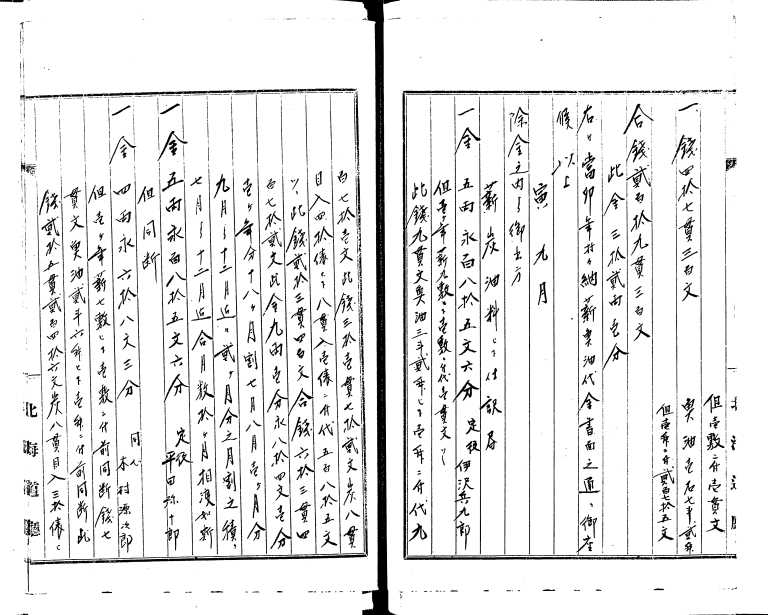 但壱敷ニ付壱貫文
一、銭四拾七貫三百文　魚油壱石七斗弐升
但壱升ニ付弐百七拾五文
合銭弐百拾九貫三百文
此金三拾弐両壱分
右ハ當卯年於ヶ納薪魚油代金書面之通ニ御座
候以上
寅九月
除金之内ヨリ御土方
薪炭油料ヒ仕訳居
一金五両永百八拾五文六分　定役　伊沢兵九郎
但壱ヶ年薪九敷ヒ壱敷ニ付代壱貫文ツヽ
此銭九貫文魚油三斗弐升ヒ壱升ニ付代九
百七拾壱文此銭三拾壱貫七拾弐文炭八貫
目入四拾俵ヒ八貫入壱俵ニ付代五百八拾五文
ツヽ此銭弐拾三貫四百文合銭六拾三貫四
百七拾弐文此金九両壱分永八拾四文壱分
壱ヶ年分十八ヶ月割七月八月壱ヶ月分
九月ヨリ十二月迄ハ弐ヶ月分之月割之積ニ
七月ヨリ十二月迄合月数拾ヶ月相渡如斯
一金五両永百八拾五文六分　定役　平田弥十郎
但同断
一金四両永六拾八文三分　同人　木村源次郎
但壱ヶ年薪七敷ヒ壱敷ニ付前同断銭七
貫文魚油弐斗六升ヒ壱升ニ付前同断此
銭弐拾五貫弐百四拾六文炭八貫目入三拾俵ヒ
北海道廳